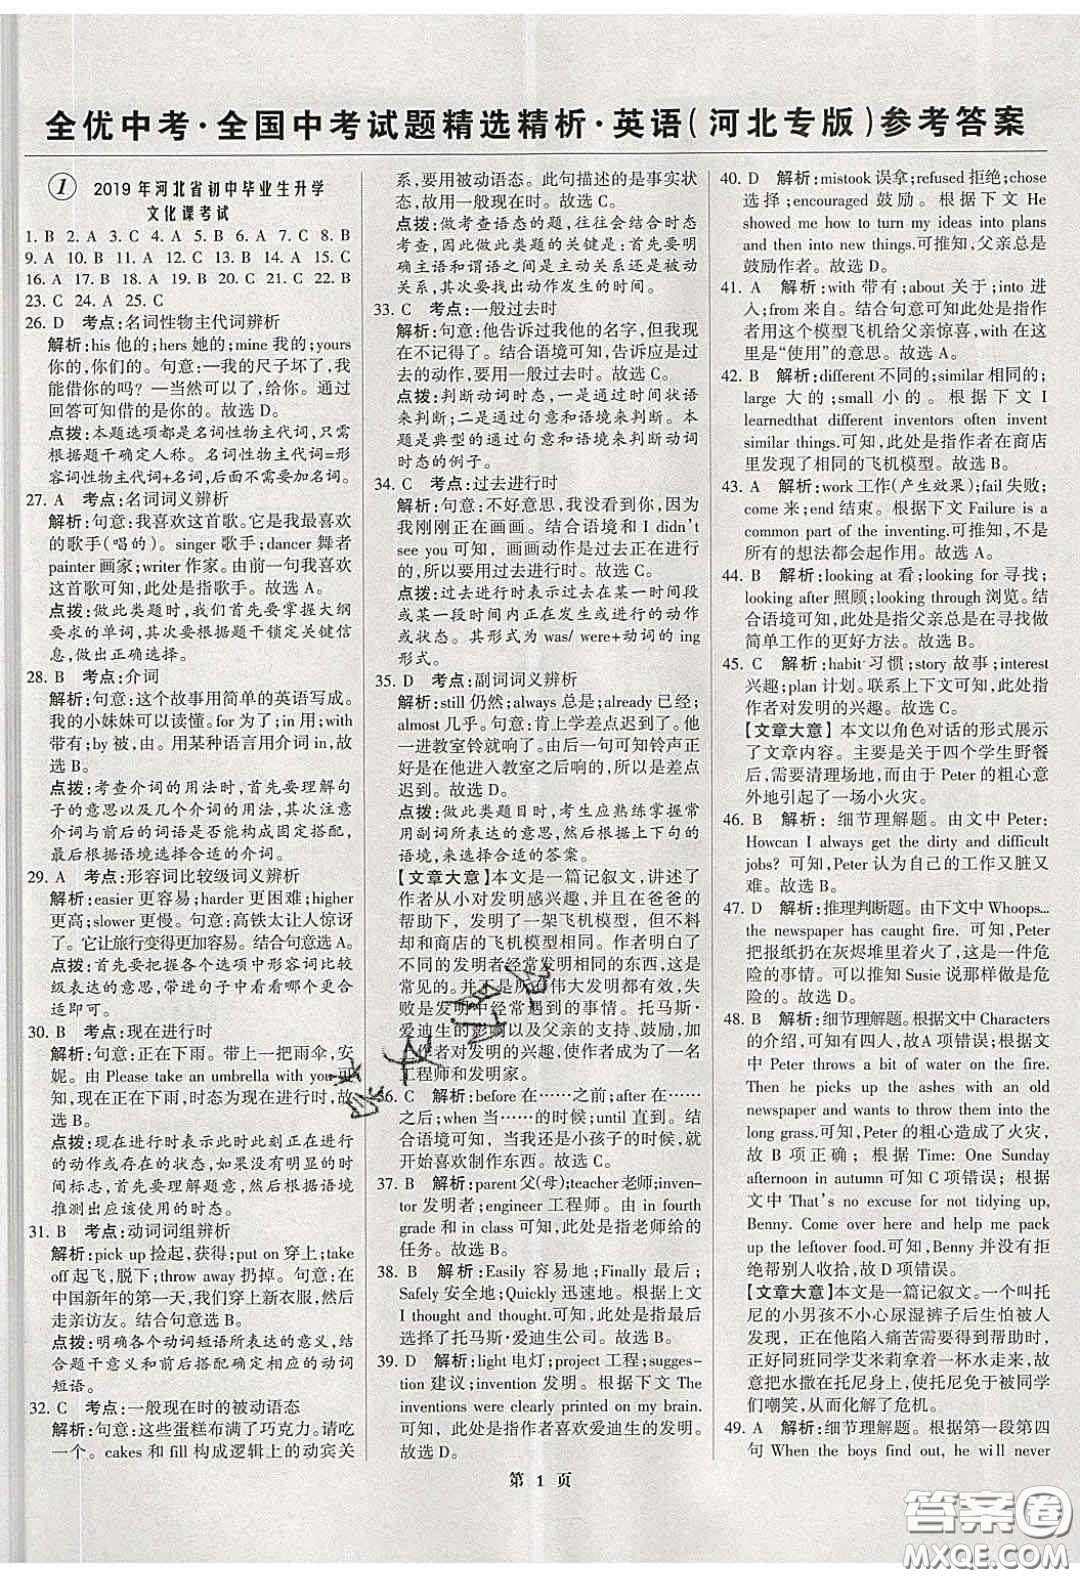 全优中考·全国中考试题精选精析·英语(河北专版)参考答案
① 2019年河北省初中毕业生升学
文化课考试
1. B 2. A 3. C 4. A 5. B 6. A 7. C 8. B
9. A 10. B 11. A 12. C 13. B 14. A 15. C
16. A 17. B 18. A 19. C 20. C 21. A 22. B
23. C 24. A 25. C
26. D 考点:名词性物主代词辨析
解析:his 他的;hers 她的;mine 我的;yours
你的,你们的。句意:—我的尺子坏了,我
能借你的吗?—当然可以了,给你。通过
回答可知借的是你的。故选 D。
点拨:本题选项都是名词性物主代词,只需
根据题干确定人称。名词性物主代词=形
容词性物主代词+名词,后面不需要名词。
27. A 考点:名词词义辨析
解析:句意:我喜欢这首歌。它是我最喜欢
的歌手(唱的)。singer 歌手;dancer 舞者
painter 画家;writer 作家。由前一句我喜欢
这首歌可知,此处是指歌手。故选 A。
点拨:做此类题时,我们首先要掌握大纲
要求的单词,其次要根据题干锁定关键信
息,做出正确选择。
28. B 考点:介词
解析:句意:这个故事用简单的英语写成。
我的小妹妹可以读懂。for 为了;in 用;with
带有;by 被,由。用某种语言用介词 in,故
选 B。
点拨:考查介词的用法时,首先要理解句
子的意思以及几个介词的用法,其次注意
介词与前后的词语是否能构成固定搭配,
最后根据语境选择合适的介词。
29. A 考点:形容词比较级词义辨析
解析:easier 更容易;harder 更困难;higher
更高;slower 更慢。句意:高铁太让人惊讶
了。它让旅行变得更加容易。结合句意选 A。
点拨:首先要把各个选项中形容词比较
级的意思,带进句子中看看哪一个意思
合适。
30. B 考点:现在进行时
解析:句意:正在下雨。带上一把雨伞,安
妮。由 Please take an umbrella with you 可
知,现在正在下雨,时态为现在进行时,故
选 B。
点拨:现在进行时表示此时此刻正在进行
的动作或存在的状态,如果没有明显的时
间标志,首先要理解题意,其次根据语境
推测出应该使用的时态。
31. B 考点:动词词组辨析
解析:pick up 捡起,获得;put on 穿上;take
off 起飞,脱下;throw away 扔掉。句意:在
中国新年的第一天,我穿上新衣服,然后
走亲访友。结合句意选 B。
点拨:明确各个动词短语所表达的意义,结
合题干意义和前后语境确定相应的动词
短语。
32. C 考点:一般现在时的被动语态
解析:句意:这些蛋糕布满了巧克力。请吃
一个。cakes 和 fill 构成逻辑上的动宾关
系,要用被动语态。此句描述的是事实状
态,故用一般现在时。故选 C。
点拨:做考查语态的题,往往会结合时态
考查,因此做此类题的关键是:首先要明
确主语和谓语之间是主动关系还是被动关
系,其次要找出动作发生的时间。
33. C 考点:一般过去时
解析:句意:他告诉过我他的名字,但我现
在不记得了。结合语境可知,告诉应是过
去的动作,要用一般过去时。故选 C。
点拨:判断动词时态,一是要根据时间状语
来判断;二是根据句意和语境来判断。本
题是典型的通过句意和语境来判断动词
时态的例子。
34. C 考点:过去进行时
解析:句意:不好意思,我没有看到你。
我刚刚正在画画。结合语境和 I didn't
see you 可知,画画动作是过去正在进行
的,所以要用过去进行时。故选 C。
点拨:过去进行时表示过去在某一时间段
或某一段时间内正在发生或进行的动作
或状态。其形式为 was/ were+动词的 ing
形式。
35. D 考点:副词词义辨析
解析:still 仍然;always 总是;already 已经;
almost 几乎。句意:肯上学差点迟到了。他
一进教室铃就响了。由后一句可知铃声正
好在他进入教室之后响的,所以是差点
迟到。故选 D。
点拨:做此类题目时,考生应熟练掌握常
用副词所表达的意思,然后根据上下句的语
境来选择合适的答案。
【文章大意】本文是一篇记叙文,讲述了
作者从小对发明感兴趣,并且在爸爸的
帮助下,发明了一架飞机模型,但不料
却和商店的飞机模型相同。作者明白了
不同的发明者经常发明相同的东西,这是
常见的。并不是所有伟大发明都有效,失
败是发明中经常遇到的事情。托马斯·
爱迪生的影响以及父亲的支持、鼓励,加
上作者对发明的兴趣,使作者成为了一名
工程师和发明家。
36. C 解析:before 在……之前;after 在……
之后;when 当……的时候;until 直到。结
合语境可知,当我还是小孩子的时候,就
开始喜欢制作东西。故选 C。
37. B 解析:parent 父(母);teacher 老师;inven-
tor 发明者;engineer 工程师。由 in fourth
grade 和 in class 可知,此处是指老师给的
任务。故选 B。
38. B 解析:Easily 容易地;Finally 最后;
Safely 安全地;Quickly 迅速地。根据上文
I thought and thought.可知,此处是指最后
选择了托马斯·爱迪生公司。故选 B。
39. D 解析:light 电灯;project 工程;sugges-
tion 建议;invention 发明。根据下文 The
inventions were clearly printed on my brain.
可知,此处是指作者喜欢爱迪生的发明。
故选 D。
40. D 解析:mistook 误拿;refused 拒绝;chose
选择;encouraged 鼓励。根据下文 He
showed me how to turn my ideas into plans
and then into new things.可推知,父亲总是
鼓励作者。故选 D。
41. A 解析:with 带有;about 关于;into 进
入;from 来自。结合句意可知此处是指作
者用这个模型飞机给父亲惊喜,with 在这
里是“使用”的意思。故选 A。
42. B 解析:different 不同的;similar 相同的;
large 大的;small 小的。根据下文 I
learnedthat different inventors often invent
similar things.可知,此处是指作者在商店
里发现了相同的飞机模型。故选 B。
43. A 解析:work 工作(产生效果);fail 失败;
come 来;end 结束。根据下文 Failure is a
common part of the inventing.可推知,不是
所有的想法都会起作用。故选 A。
44. B 解析:looking at 看;looking for 寻找;
looking after 照顾;looking through 浏览。结
合语境可知,此处是指父亲总是在寻找做
简单工作的更好方法。故选 B。
45. C 解析:habit 习惯;story 故事;interest
兴趣;plan 计划。联系上下文可知,此处是
指作者对发明的兴趣。故选 C。
【文章大意】本文以角色对话的形式展示
了文章内容。主要是关于四个学生野餐
后,需要清理场地,而由于 Peter 的粗心意
外地引起了一场小火灾。
46. B 解析:细节理解题。由文中 Peter:
Howcan I always get the dirty and difficult
jobs?可知,Peter 认为自己的工作又脏又
难。故选 B。
47. D 解析:推理判断题。由下文中 Whoops...
the newspaper has caught fire. 可知,Peter
把报纸扔在灰烬堆里着火了,这是一件危
险的事情。可以推知 Susie 说那样做是危
险的。故选 D。
48. B 解析:细节理解题。根据文中 Characters
的介绍,可知有四人,故 A 项错误;根据文
中 Peter throws a bit of water on the fire.
Then he picks up the ashes with an old
newspaper and wants to throw them into the
long grass.可知,Peter 的粗心造成了火灾,
故 B 项正确;根据 Time: One Sunday
afternoon in autumn 可知 C 项错误;根据
文中 That's no excuse for not tidying up,
Benny. Come over here and help me pack
up the leftover food.可知,Benny 并没有拒
绝帮忙,故 D 项错误。
【文章大意】本文是一篇记叙文。一个叫托
尼的小男孩不小心尿湿裤子后生怕被人
发现,正当他陷入痛苦需要得到帮助时,
正好同班同学艾米莉拿着一杯水走来,故
意把水撒在托尼身上,使托尼免于被同学
们嘲笑,从而化解了危机。
49. A 解析:细节理解题。根据第一段第四
句 When the boys find out, he will never
第 1 页
答案圈
MXQE.COM